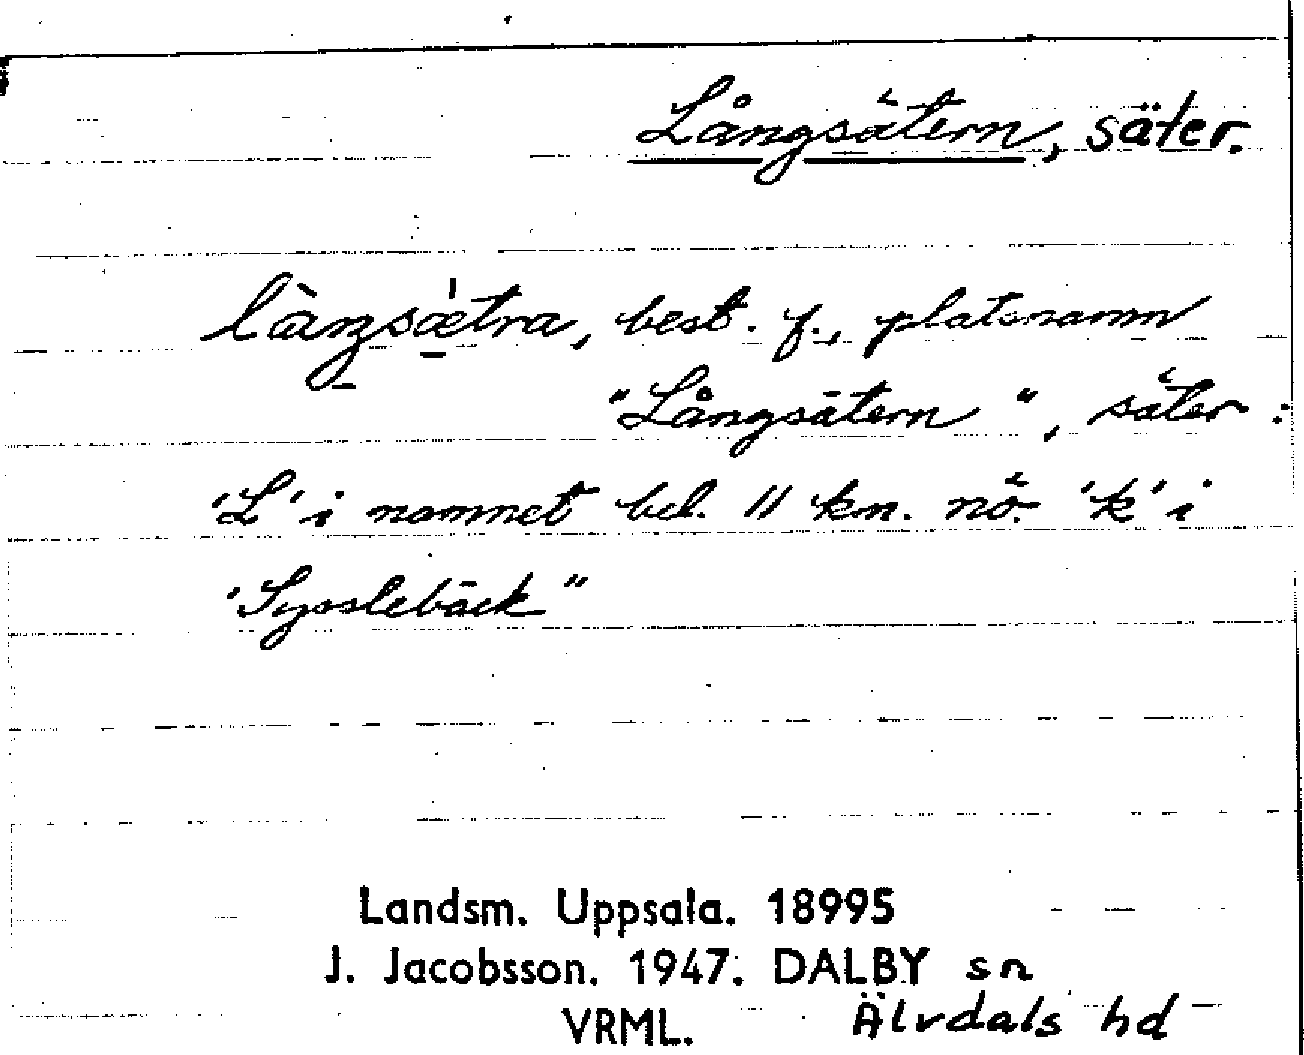 Långsätern, säter.
làŋsǽtra, best. f., platsnamn
"Långsätern", säter:
'L' i namnet bel. 11 km. nö. 'k' i
'Sysslebäck"
Landsm. Uppsala. 18995
J. Jacobsson. 1947. DALBY sn
VRML. Älvdals hd